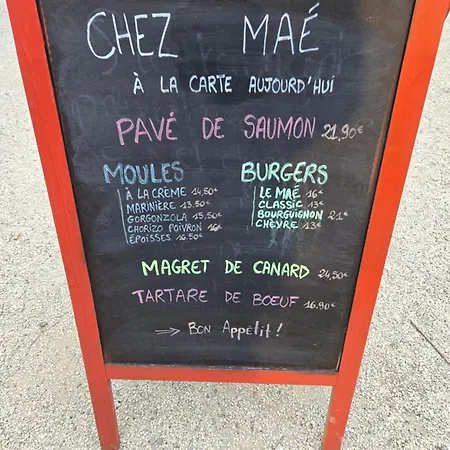 CHEZ MAÉ
À LA CARTE AUJOURD'HUI
PAVÉ DE SAUMON 21,90€
MOULES
À LA CRÈME 14,50€
MARINIÈRE 13.50€
GORGONZOLA 15.50€
CHORIZO POIVRON 16€
ÉPOISSES 16.50€
BURGERS
LE MAÉ 16€
CLASSIC 13€
BOURGUIGNON 21€
CHÈVRE 13€
MAGRET DE CANARD 24,50€
TARTARE DE BŒUF 16,90€
→ BON APPÉTIT !